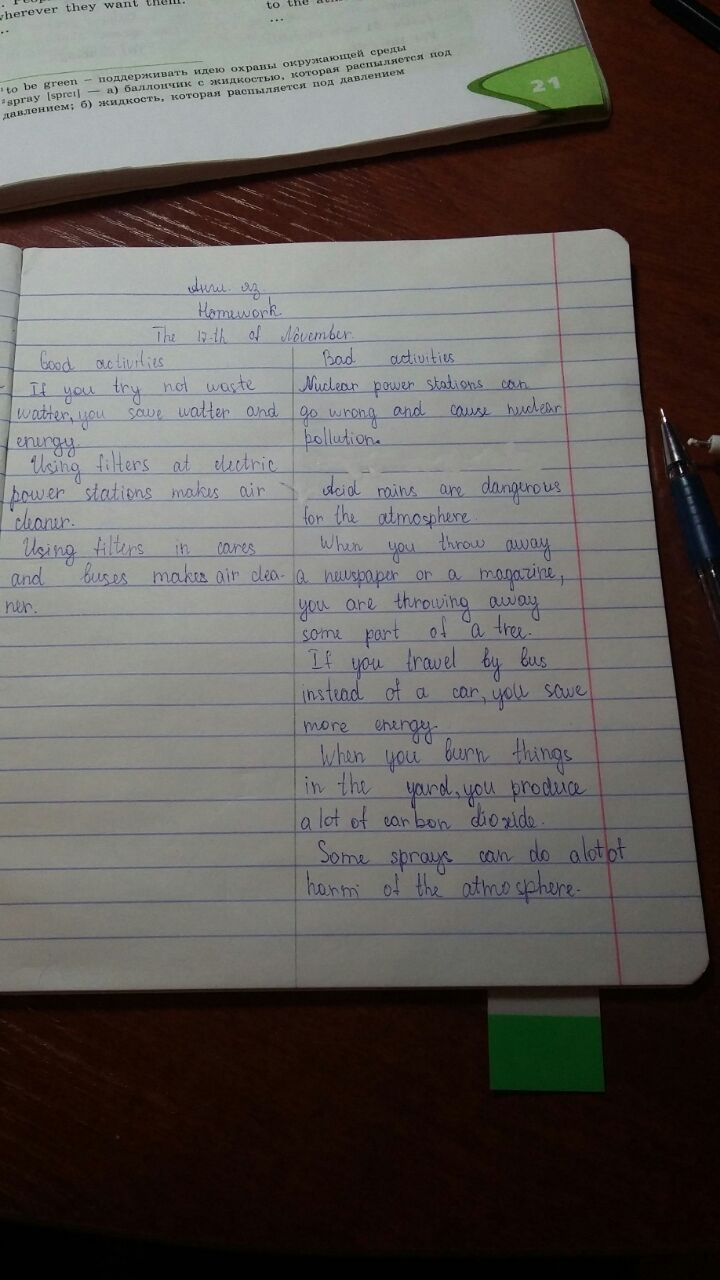 wherever they want them.
to the
...
...
¹to be green — поддерживать идею охраны окружающей среды
²spray [spreɪ] — а) баллончик с жидкостью, которая распыляется под
давлением; б) жидкость, которая распыляется под давлением
21
Англ. яз.
Homework
The 17-th of November.
Good activities
If you try not waste
watter, you save watter and
energy.
Using filters at electric
power stations makes air
cleaner.
Using filters in cares
and buses makes air clea-
ner.
Bad activities
Nuclear power stations can
go wrong and cause nuclear
pollution.
Acid rains are dangerous
for the atmosphere.
When you throw away
a newspaper or a magazine,
you are throwing away
some part of a tree.
If you travel by bus
instead of a car, you save
more energy.
When you burn things
in the yard, you produce
a lot of carbon dioxide.
Some sprays can do a lot of
harm of the atmosphere.